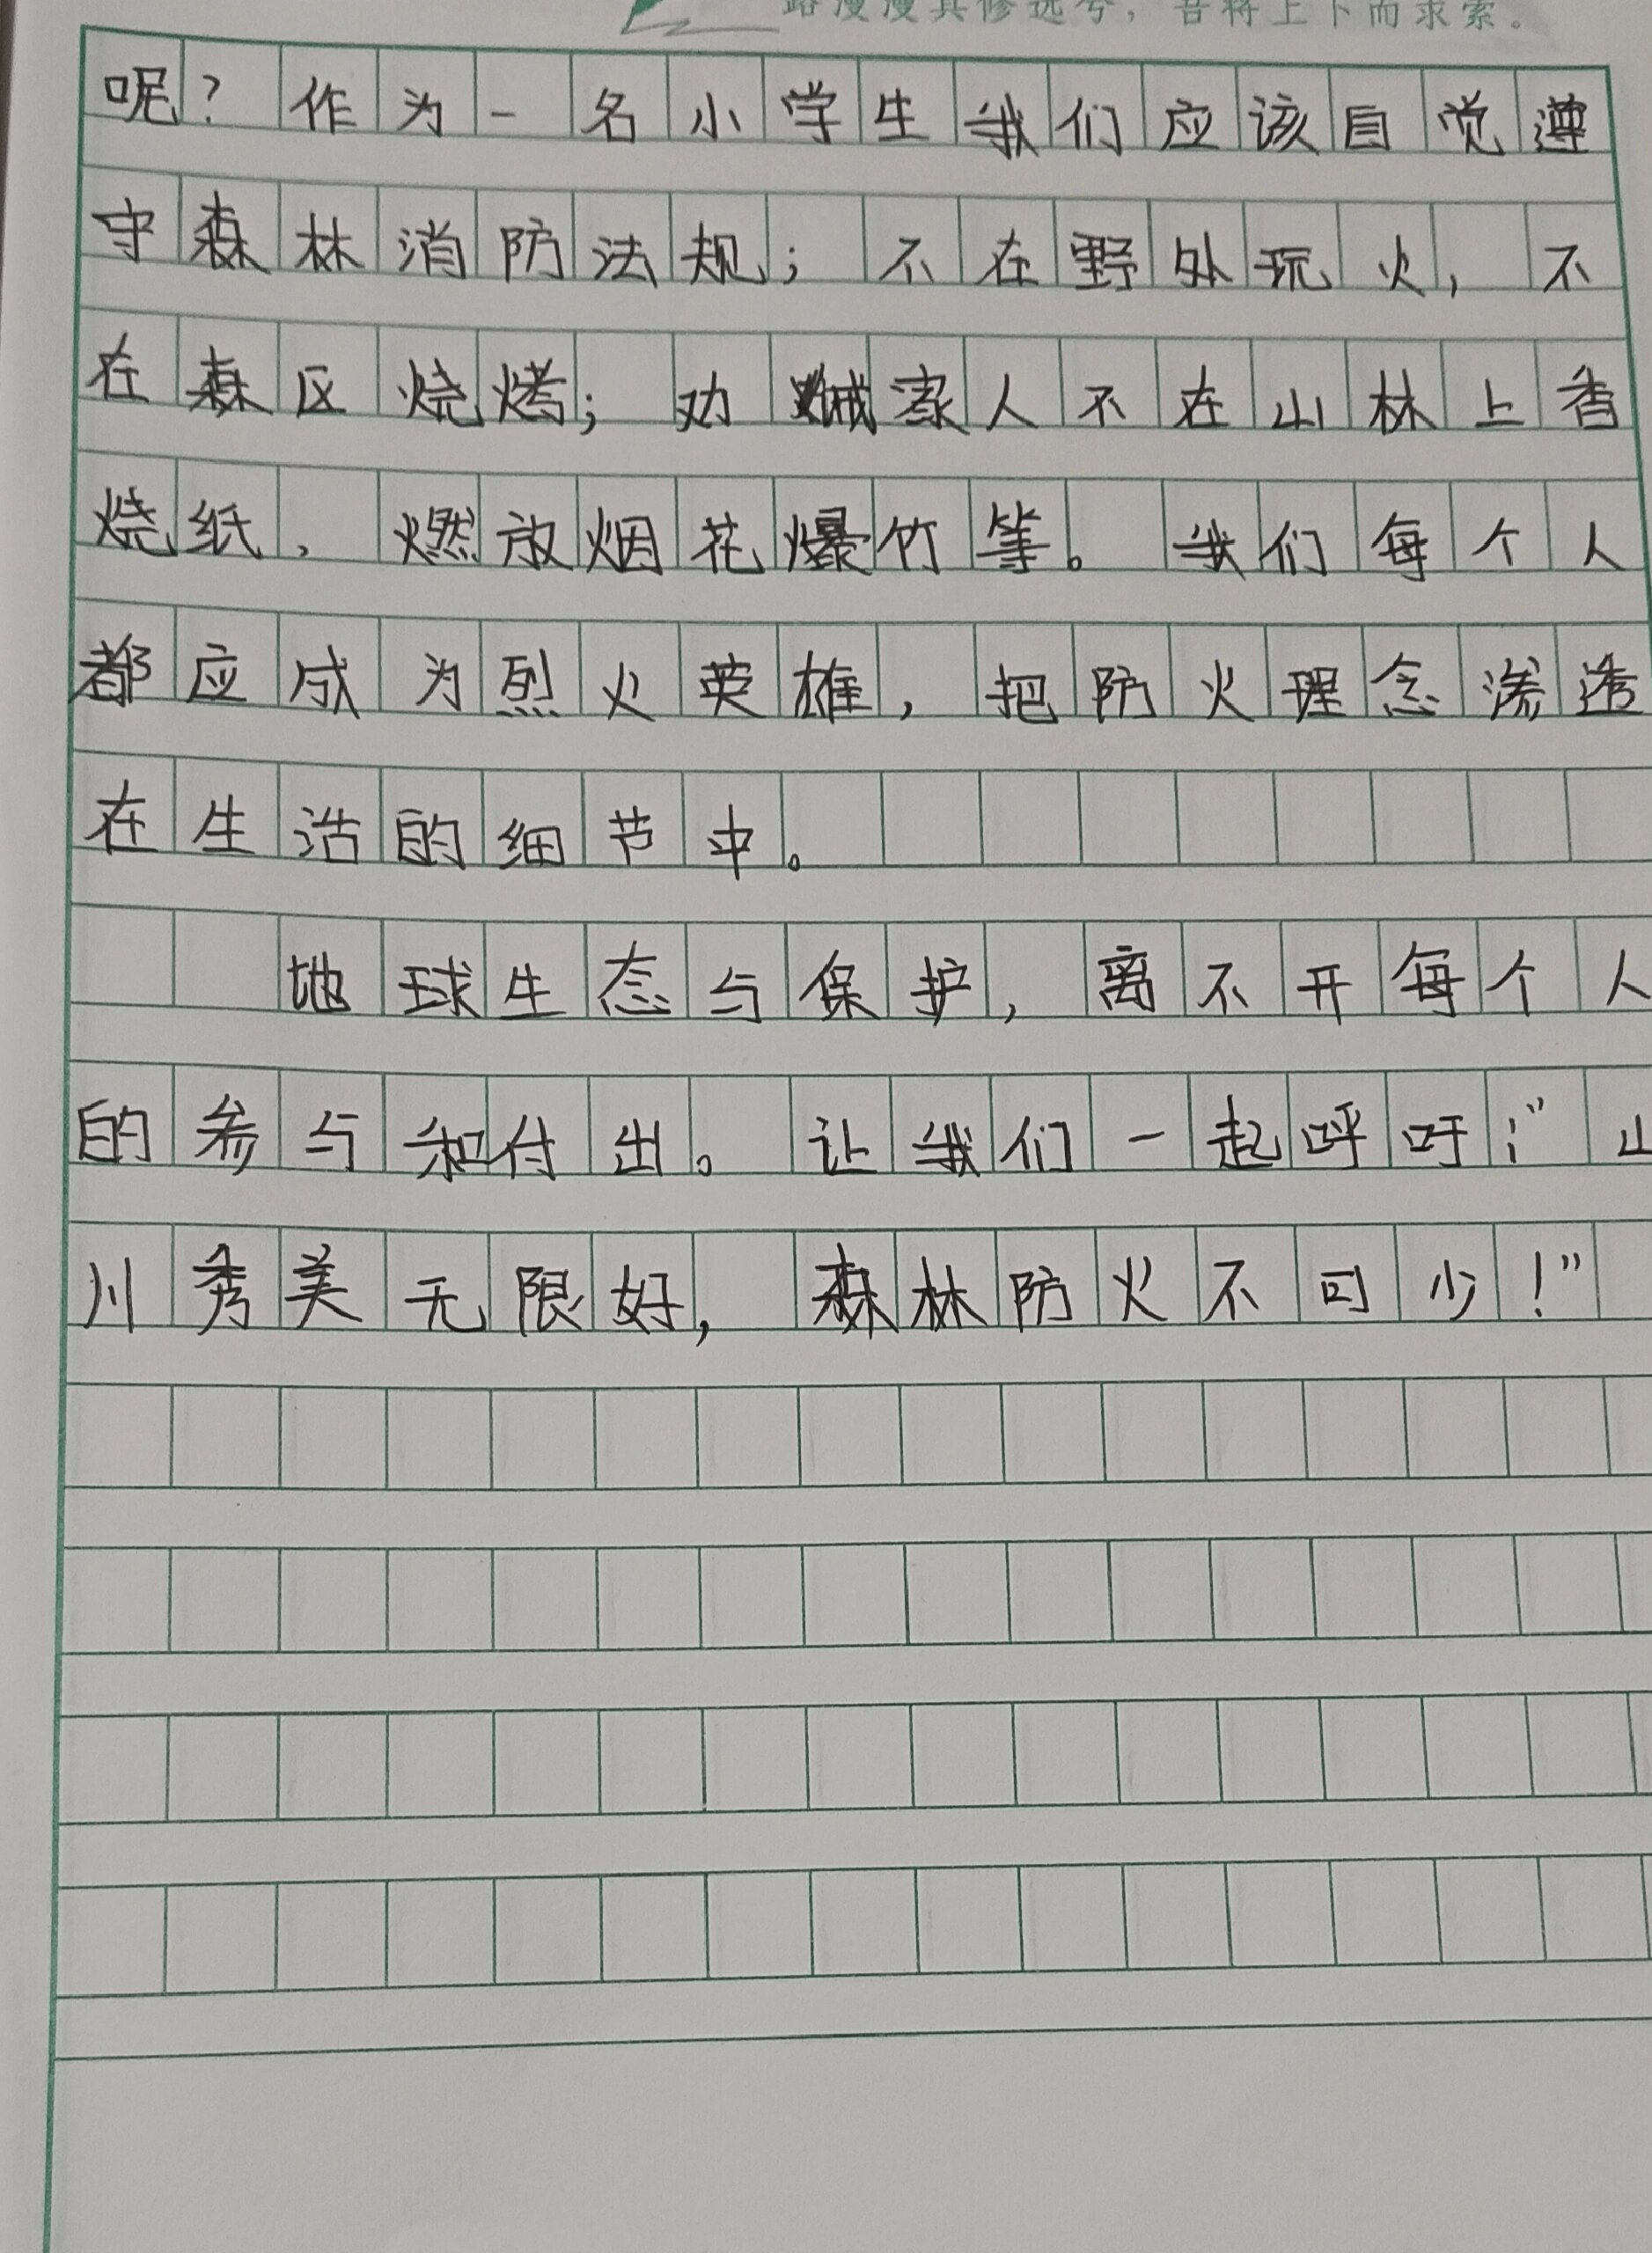 路漫漫其修远兮，吾将上下而求索。
呢？作为一名小学生我们应该自觉遵
守森林消防法规；不在野外玩火，不
在森区烧烤；劝诫家人不在山林上香
烧纸，燃放烟花爆竹等。我们每个人
都应成为烈火英雄，把防火理念渗透
在生活的细节中。
地球生态与保护，离不开每个人
的参与和付出。让我们一起呼吁：”山
川秀美无限好，森林防火不可少！”